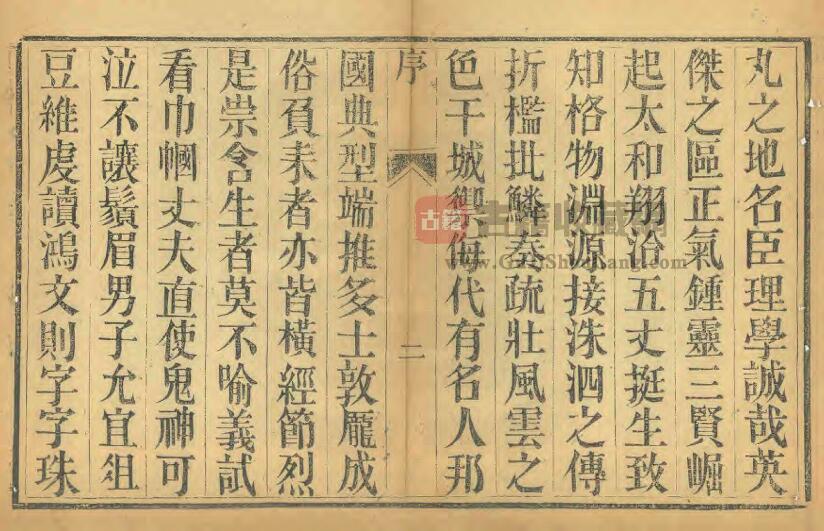 丸之地名臣理學誠哉英
傑之區正氣鍾靈三賢崛
起太和翔洽五丈挺生致
知格物淵源接洙泗之傳
折檻批鱗奏疏壯風雲之
色干城禦侮代有名人邦
序
二
國典型端推多士敦龐成
俗負耒者亦皆橫經節烈
是崇含生者莫不喻義試
看巾幗丈夫直使鬼神可
泣不讓鬚眉男子允宜俎
豆維虔讀鴻文則字字珠
古籍
www.GuJiShuCang.com